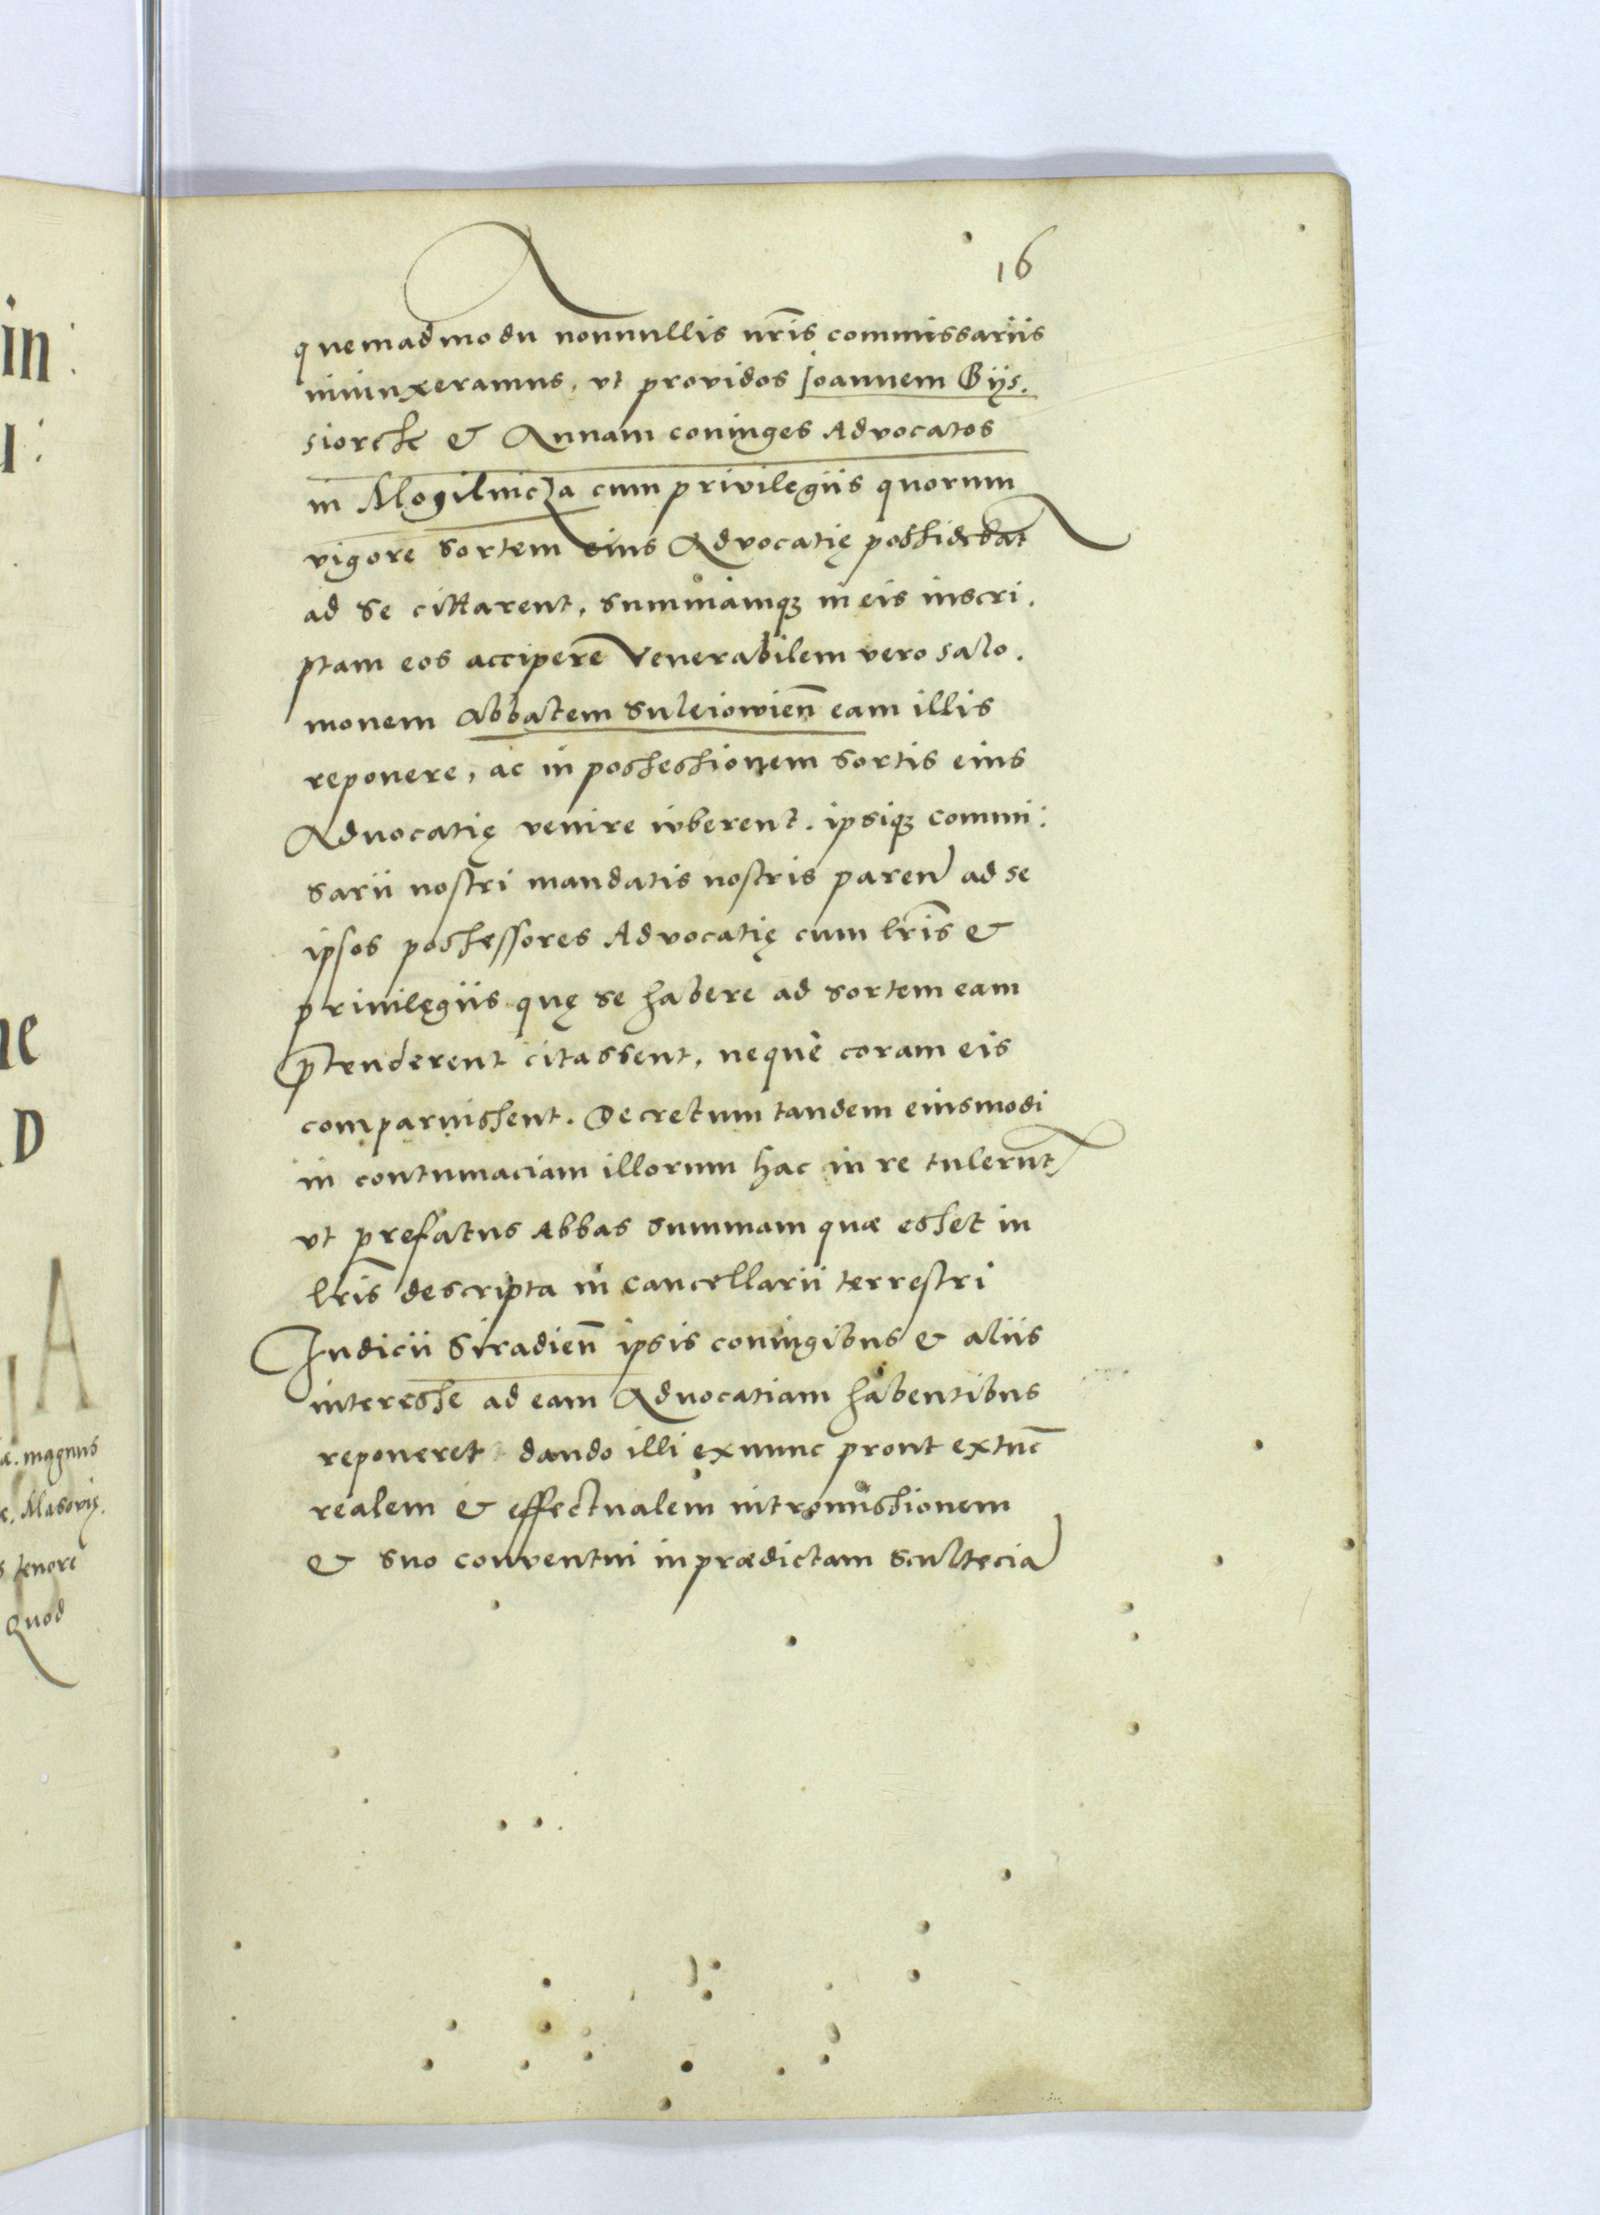 in:
u:
ne
D
A
æ. magnus
e. Masovię.
s tenore
Quod
16
quemadmodu nonnullis nr̃is commissariis
iniunxeramus, vt providos Joannem Gijs.
siorek & Annam coniuges Advocatos
in Mogilnicza cum privilegiis quorum
vigore sortem eius Advocatię possidebat
ad se cittarent, summamqꝫ in eis inscri.
ptam eos accipere Venerabilem vero salo.
monem Abbatem Suleiowień eam illis
reponere, ac in possessionem sortis eius
Aduocatię venire ivberent. ipsiqꝫ commi:
sarii nostri mandatis nostris paren ad se
ipsos possessores Advocatię cum lr̃is &
privilęgiis quę se habere ad sortem eam
p̄tenderent citassent, neque coram eis
comparuissent. Decretum tandem eiusmodi
in contumaciam illorum hac in re tulerunt
vt prefatus Abbas summam quæ esset in
lr̃is descripta in Cancellarii terrestri
Iudicii Siradień ipsis coniugibus & aliis
interesse ad eam Aduocatiam habentibus
reponeret dando illi exnunc prout extūc
realem & effectualem intromissionem
& suo conventui in prædictam scultecia